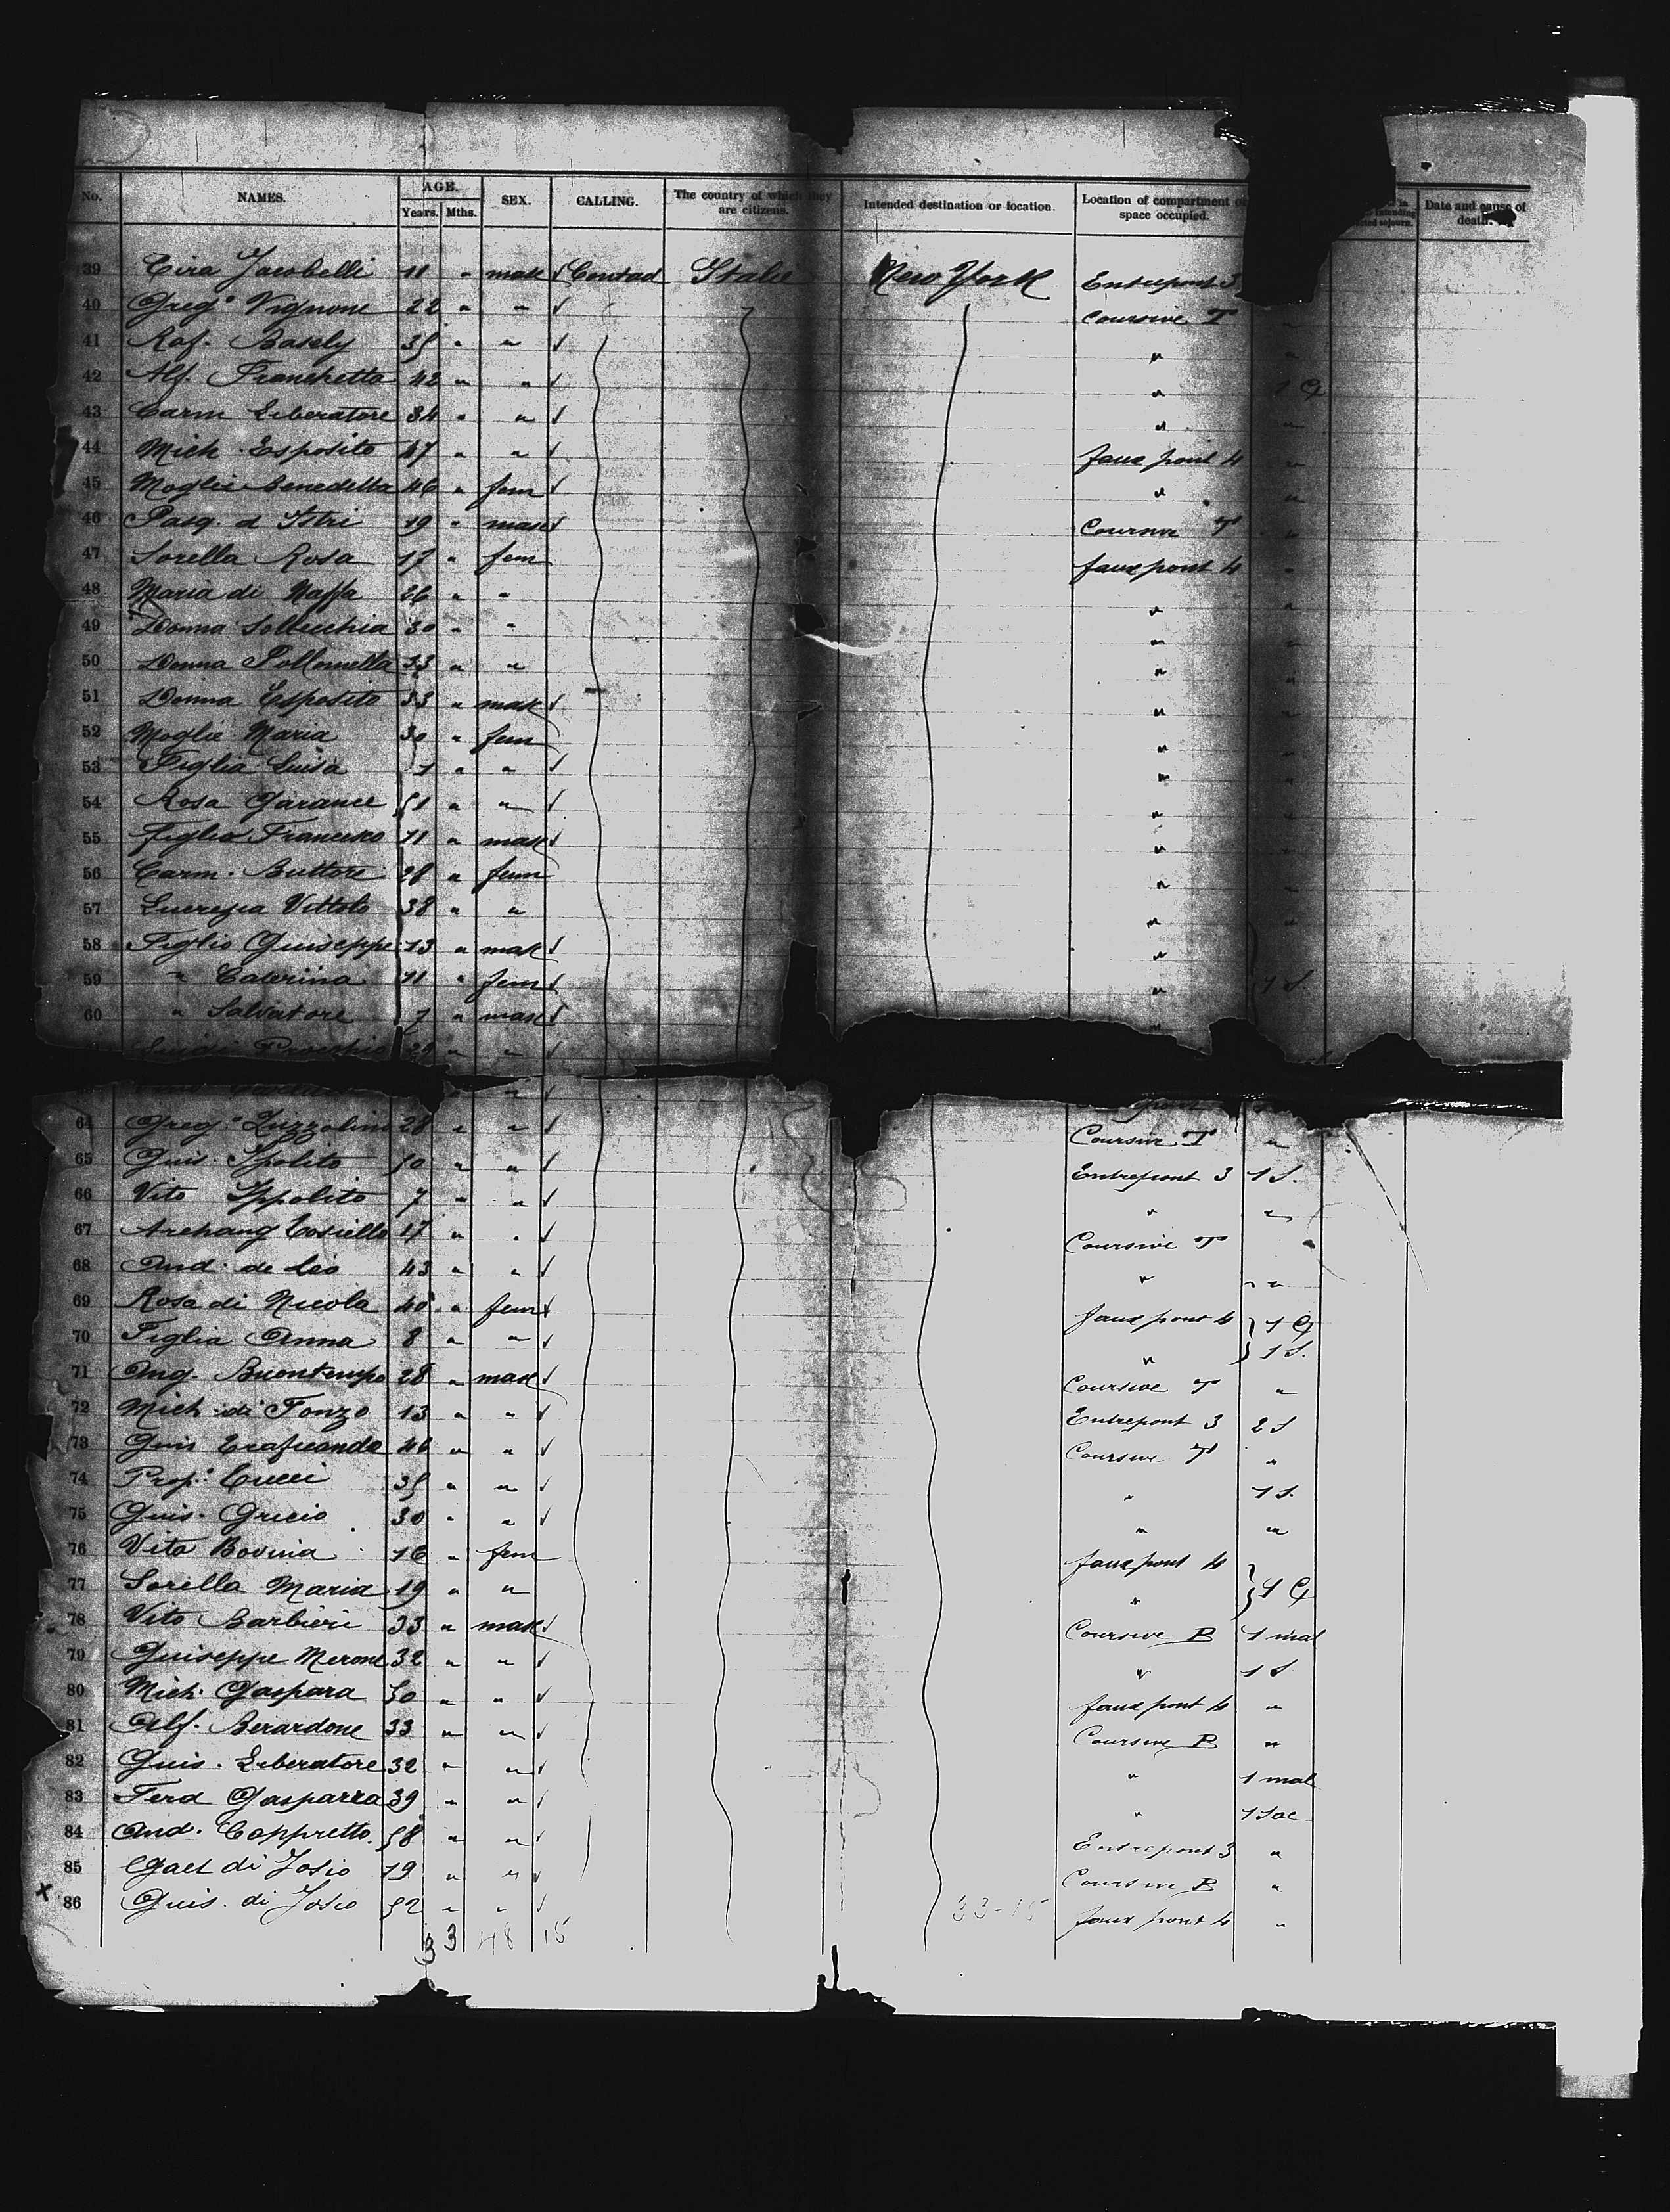 No. NAMES. AGE. Years. Mths. SEX. CALLING. The country of which they are citizens. Intended destination or location. Location of compartment or space occupied. Date and cause of death.
39 Cira Jacobelli 11 " mask Contad Italie New York Entrepont 3
40 Greg° Vignone 22 " " Coursive T "
41 Raf. Basely 35 " " " "
42 Alf. Franchetta 42 " " " 1 C
43 Carm Liberatore 34 " " " "
44 Mich. Esposito 47 " " faux pont 4 "
45 Moglie Benedetta 46 " fem " "
46 Pasq. d Istri 19 " mask Coursive T "
47 Sorella Rosa 17 " fem faux pont 4 "
48 Maria di 26 " " " "
49 Donna 30 " " " "
50 Donna 33 " " " "
51 Donna Esposito 33 " mask " "
52 Moglie Maria 30 " fem " "
53 Figlia Luisa 1 " " " "
54 Rosa Garance 51 " " " "
55 Figlio Francesco 11 " mask " "
56 Carm. Buttore 28 " fem " "
57 Lucrezia Vittolo 38 " " " "
58 Figlio Guiseppe 13 " mask "
59 " Caterina 11 " fem " 1 S
60 " Salvatore 7 " mask "
64 Greg° Luzzolini 28 " " Coursive T "
65 Guis. Ipolito 50 " " Entrepont 3 1 S.
66 Vito Ippolito 7 " " " "
67 Archang Cosiello 17 " " Coursive T
68 And. de Leo 43 " " " "
69 Rosa di Nicola 40 " fem faux pont 4 1 C
70 Figlia Anna 8 " " " 1 S.
71 Ang. Buontempo 28 " mask Coursive T "
72 Mich. di Fonzo 13 " " Entrepont 3 2 S
73 Guis 46 " " Coursive T "
74 Prosp. Cucci 35 " " " 1 S.
75 Guis. Gricio 30 " " " "
76 Vita Bovina 16 " fem faux pont 4
77 Sorella Maria 19 " " " 1 C
78 Vito Barbieri 33 " mask Coursive B 1 mal
79 Guiseppe Merone 32 " " " 1 S
80 Mich. Gaspara 50 " " faux pont 4 "
81 Alf. Berardone 33 " " Coursive B "
82 Guis. Liberatore 32 " " " 1 mal
83 Ferd Gasparra 39 " " " 1 Sac
84 And. Coppretto. 58 " " Entrepont 3 "
85 Gaet di Josio 19 " " Coursive B "
x 86 Guis. di Josio 52 " " faux pont 4 "
33 48 15 33-15